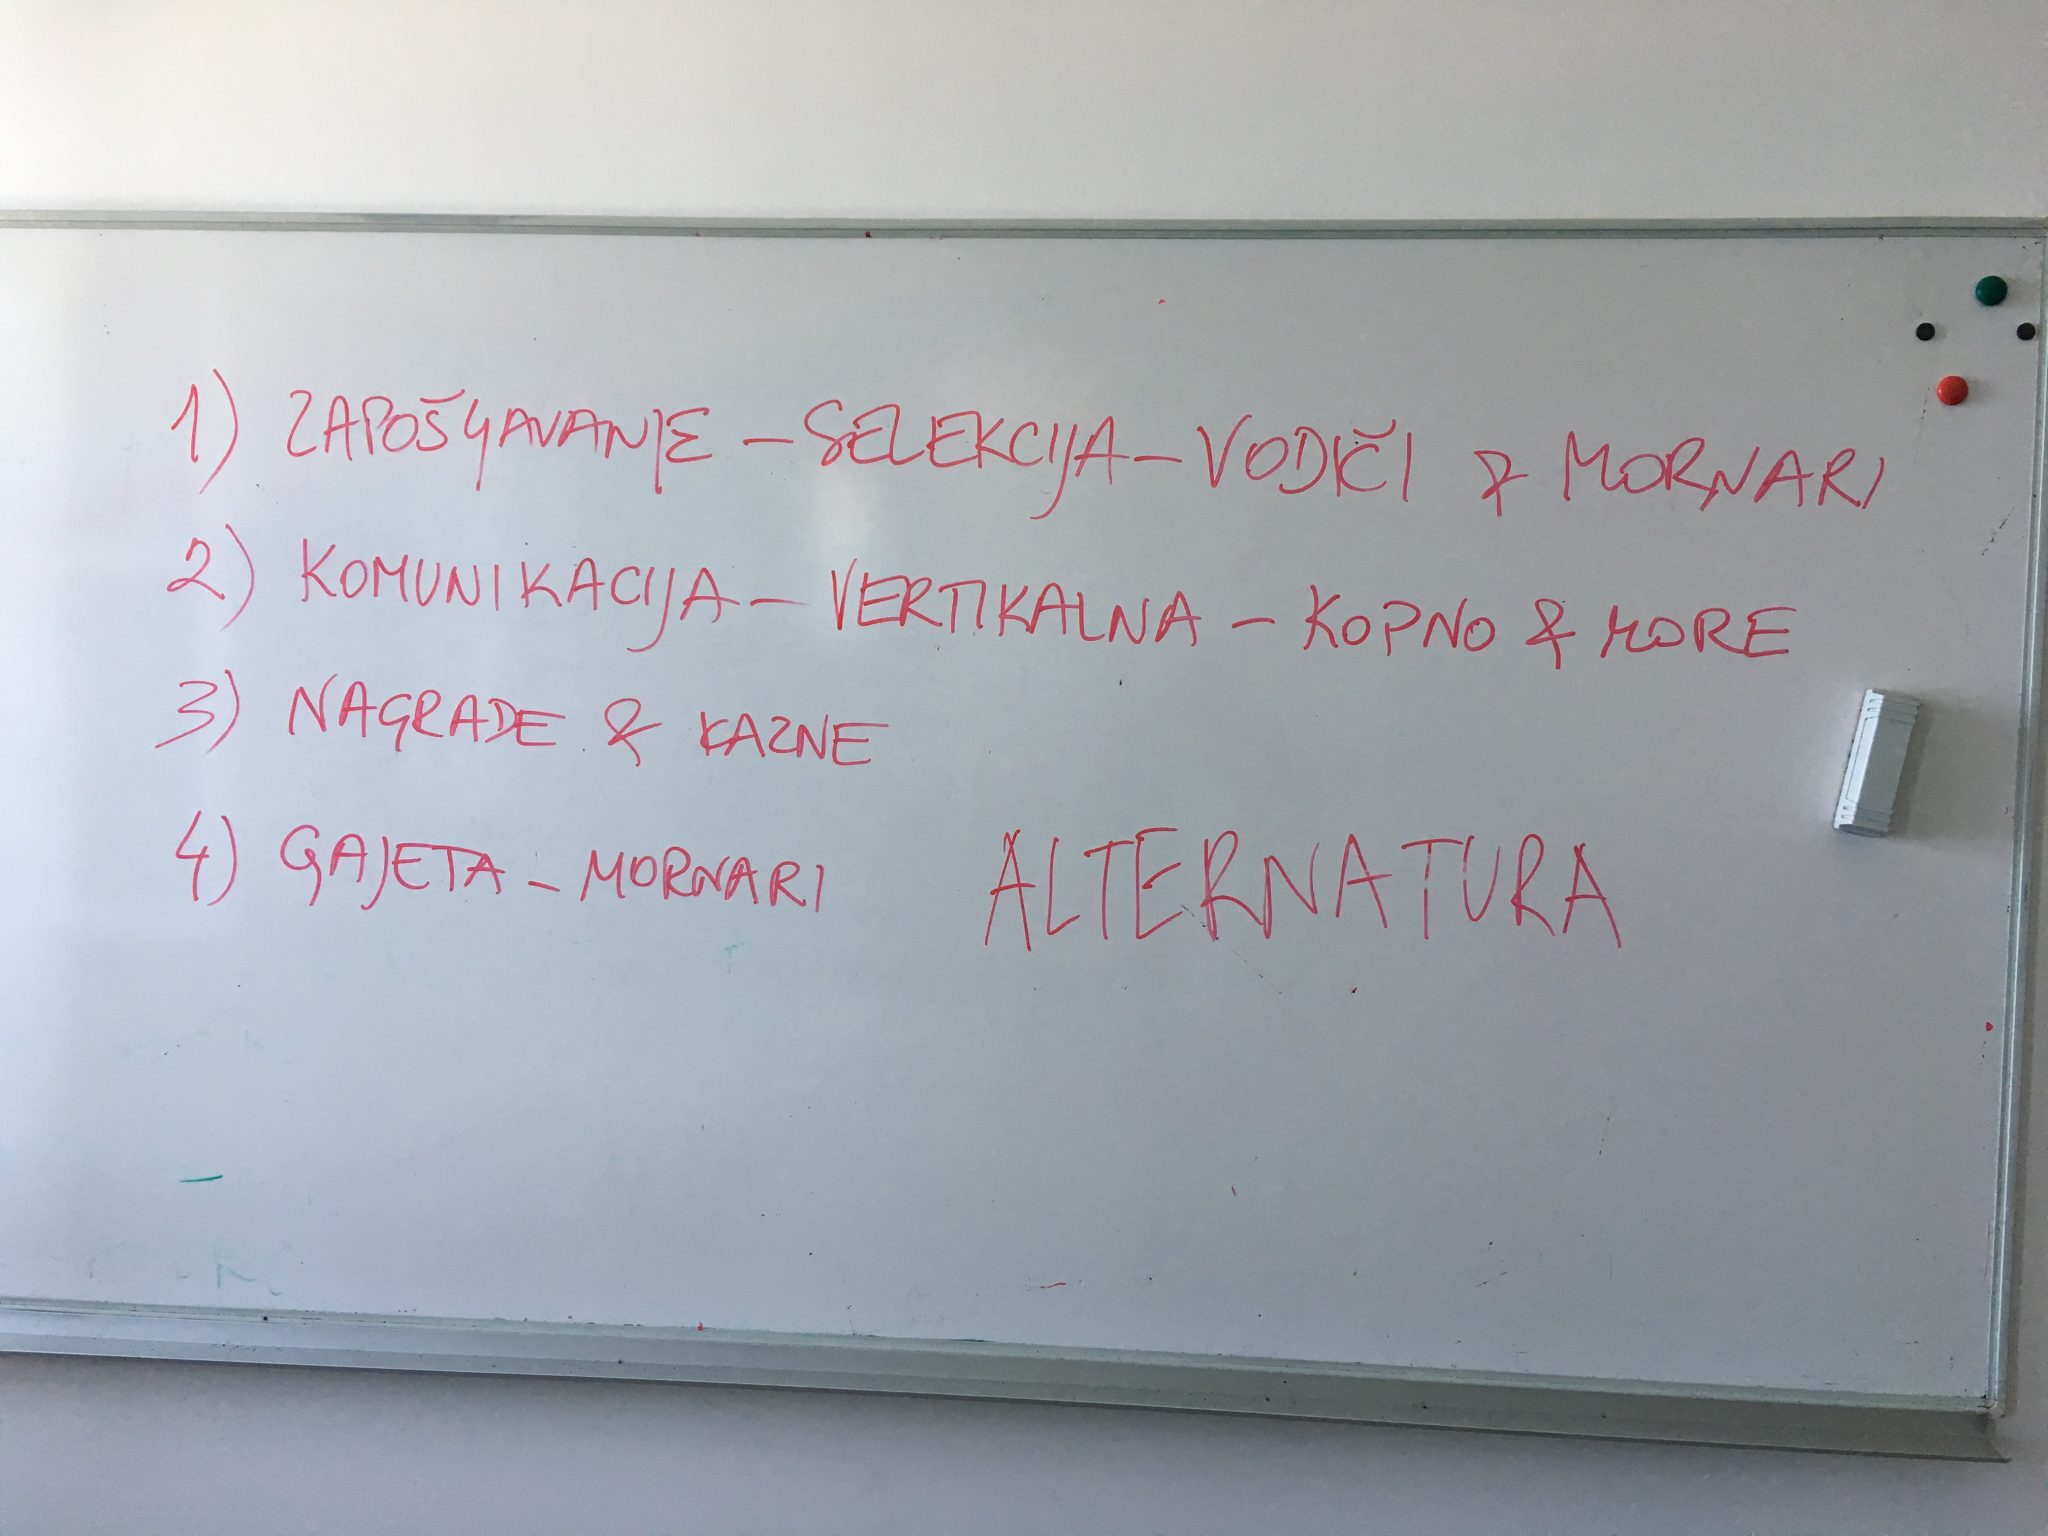 1) ZAPOŠLJAVANJE – SELEKCIJA – VODIČI & MORNARI
2) KOMUNIKACIJA – VERTIKALNA – KOPNO & MORE
3) NAGRADE & KAZNE
4) GAJETA – MORNARI ALTERNATURA